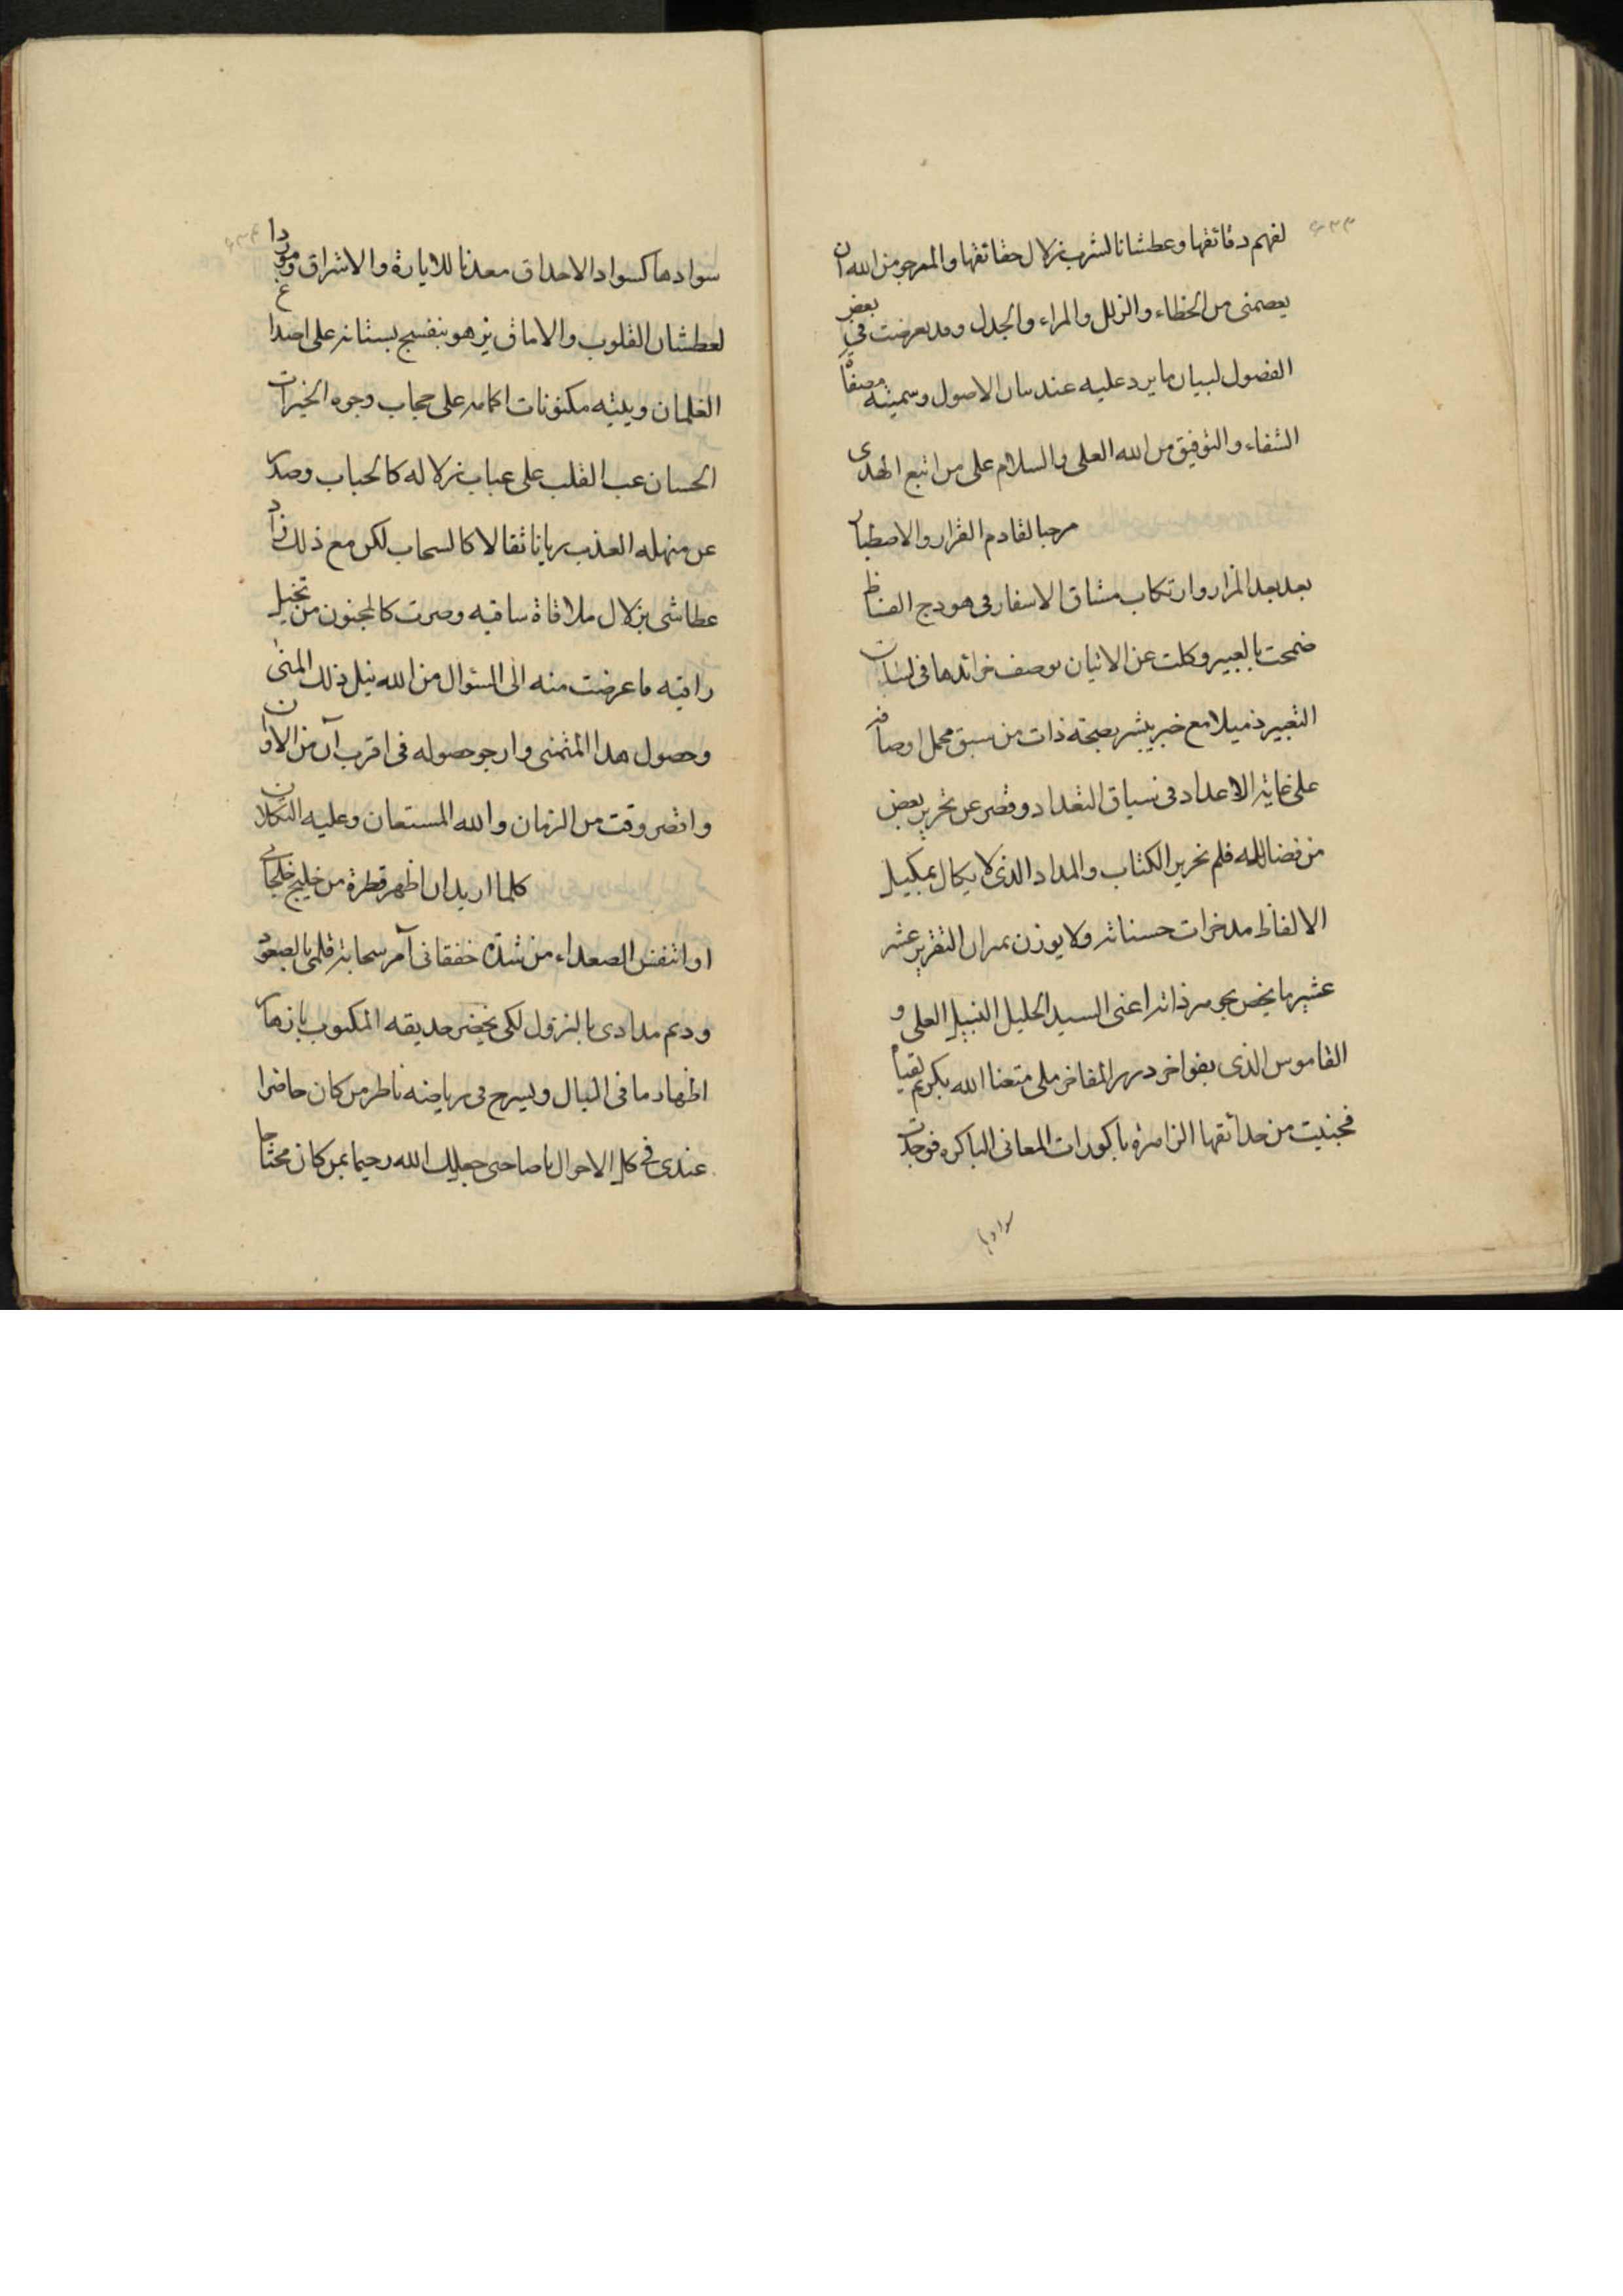 ۶۳۳
لفهم دقائقها وعطشانا لشرب زلال حقائقها والمرجو من الله ان
يعصمنى من الخطاء والزلل والمراء والجدل وقد تعرضت فى بعض
الفصول لبيان ما يرد عليه عند بيان الاصول وسميته مصفاة
الشفاء والتوفيق من الله العلى والسلام على من اتبع الهدى
مرحبا لقادم القرار والاصطبار
بعد بعد المزار وارتكاب مشاق الاسفار فى هودج الفاظ
ضمخت بالعبير وكلت عن الاتيان بوصف خرائدها فى لسان
التعبير ذميلا مع خبر يبشر بصحة ذات من سبق مجمل اوصافه
على غاية الاعداد فى سياق التعداد وقصر عن تحرير بعض
من فضائله قلم نحرير الكتاب والمداد الذى لا يكال بمكيل
الالفاظ مدخرات حسناته ولا يوزن بميزان التقرير عشر
عشير ما يخص بجوهر ذاته اعنى السيد الجليل النبيل العلى و
القاموس الذى بفواخر درر المفاخر ملى متعنا الله بكريم لقياه
فجنيت من حدائقها الزاهرة باكورات المعانى الباكره فوجدت
سوادها
۶۳۴
سوادها كسواد الاحداق معدنا للانارة والاشراق وموردا
لعطشان القلوب والاماق يزهو بنفسج بستانه على اصداغ
الغلمان ويتيه مكنونات اكمامه على حجاب وجوه الخيرات
الحسان عب القلب على عباب زلاله كالحباب وصدر
عن منهله العذب ريانا ثقالا كالسحاب لكن مع ذلك زاد
عطاشى بزلال ملاقاة ساقيه وصرت كالمجنون من تخيل
راقيه ما عرضت منه الى السؤال من الله نيل ذلك المنى
وحصول هذا المتمنى وارجو حصوله فى اقرب آن من الاوان
واقصر وقت من الزمان والله المستعان وعليه التكلان
كلما اريد ان اظهر قطرة من خليج خلجات
او اتنفس الصعداء من شدة خفقانى آمر سحابة قلمى بالصعود
وديم مدادى بالنزول لكى يخضر حديقه المكتوب بازهار
اظهار ما فى البال ويسرح فى رياضه ناظر من كان حاضرا
عندى فى كل الاحوال يا صاحبى جعلك الله رحيما بمن كان محتاجا